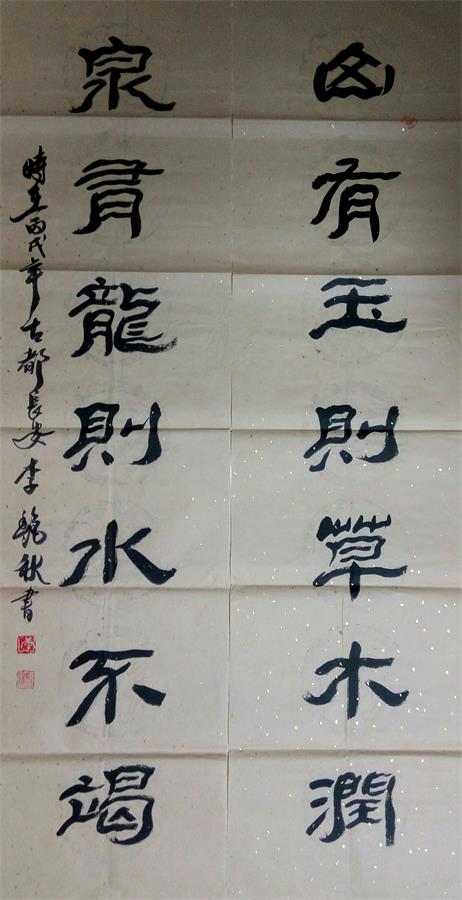 山有玉則草木潤
泉有龍則水不竭
時在丙戌年古都長安李 秋書